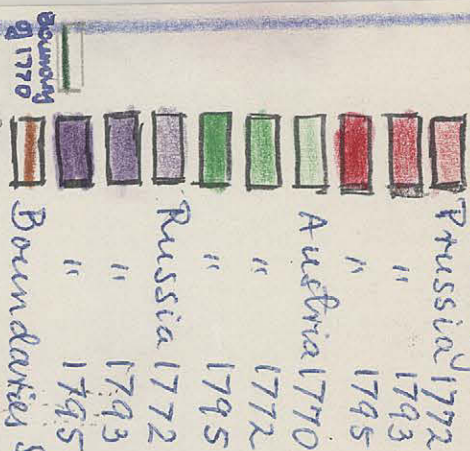 Prussia 1772
" 1793
" 1795
Austria 1770
" 1772
" 1795
Russia 1772
" 1793
" 1795
Boundaries
Boundary
of 1770